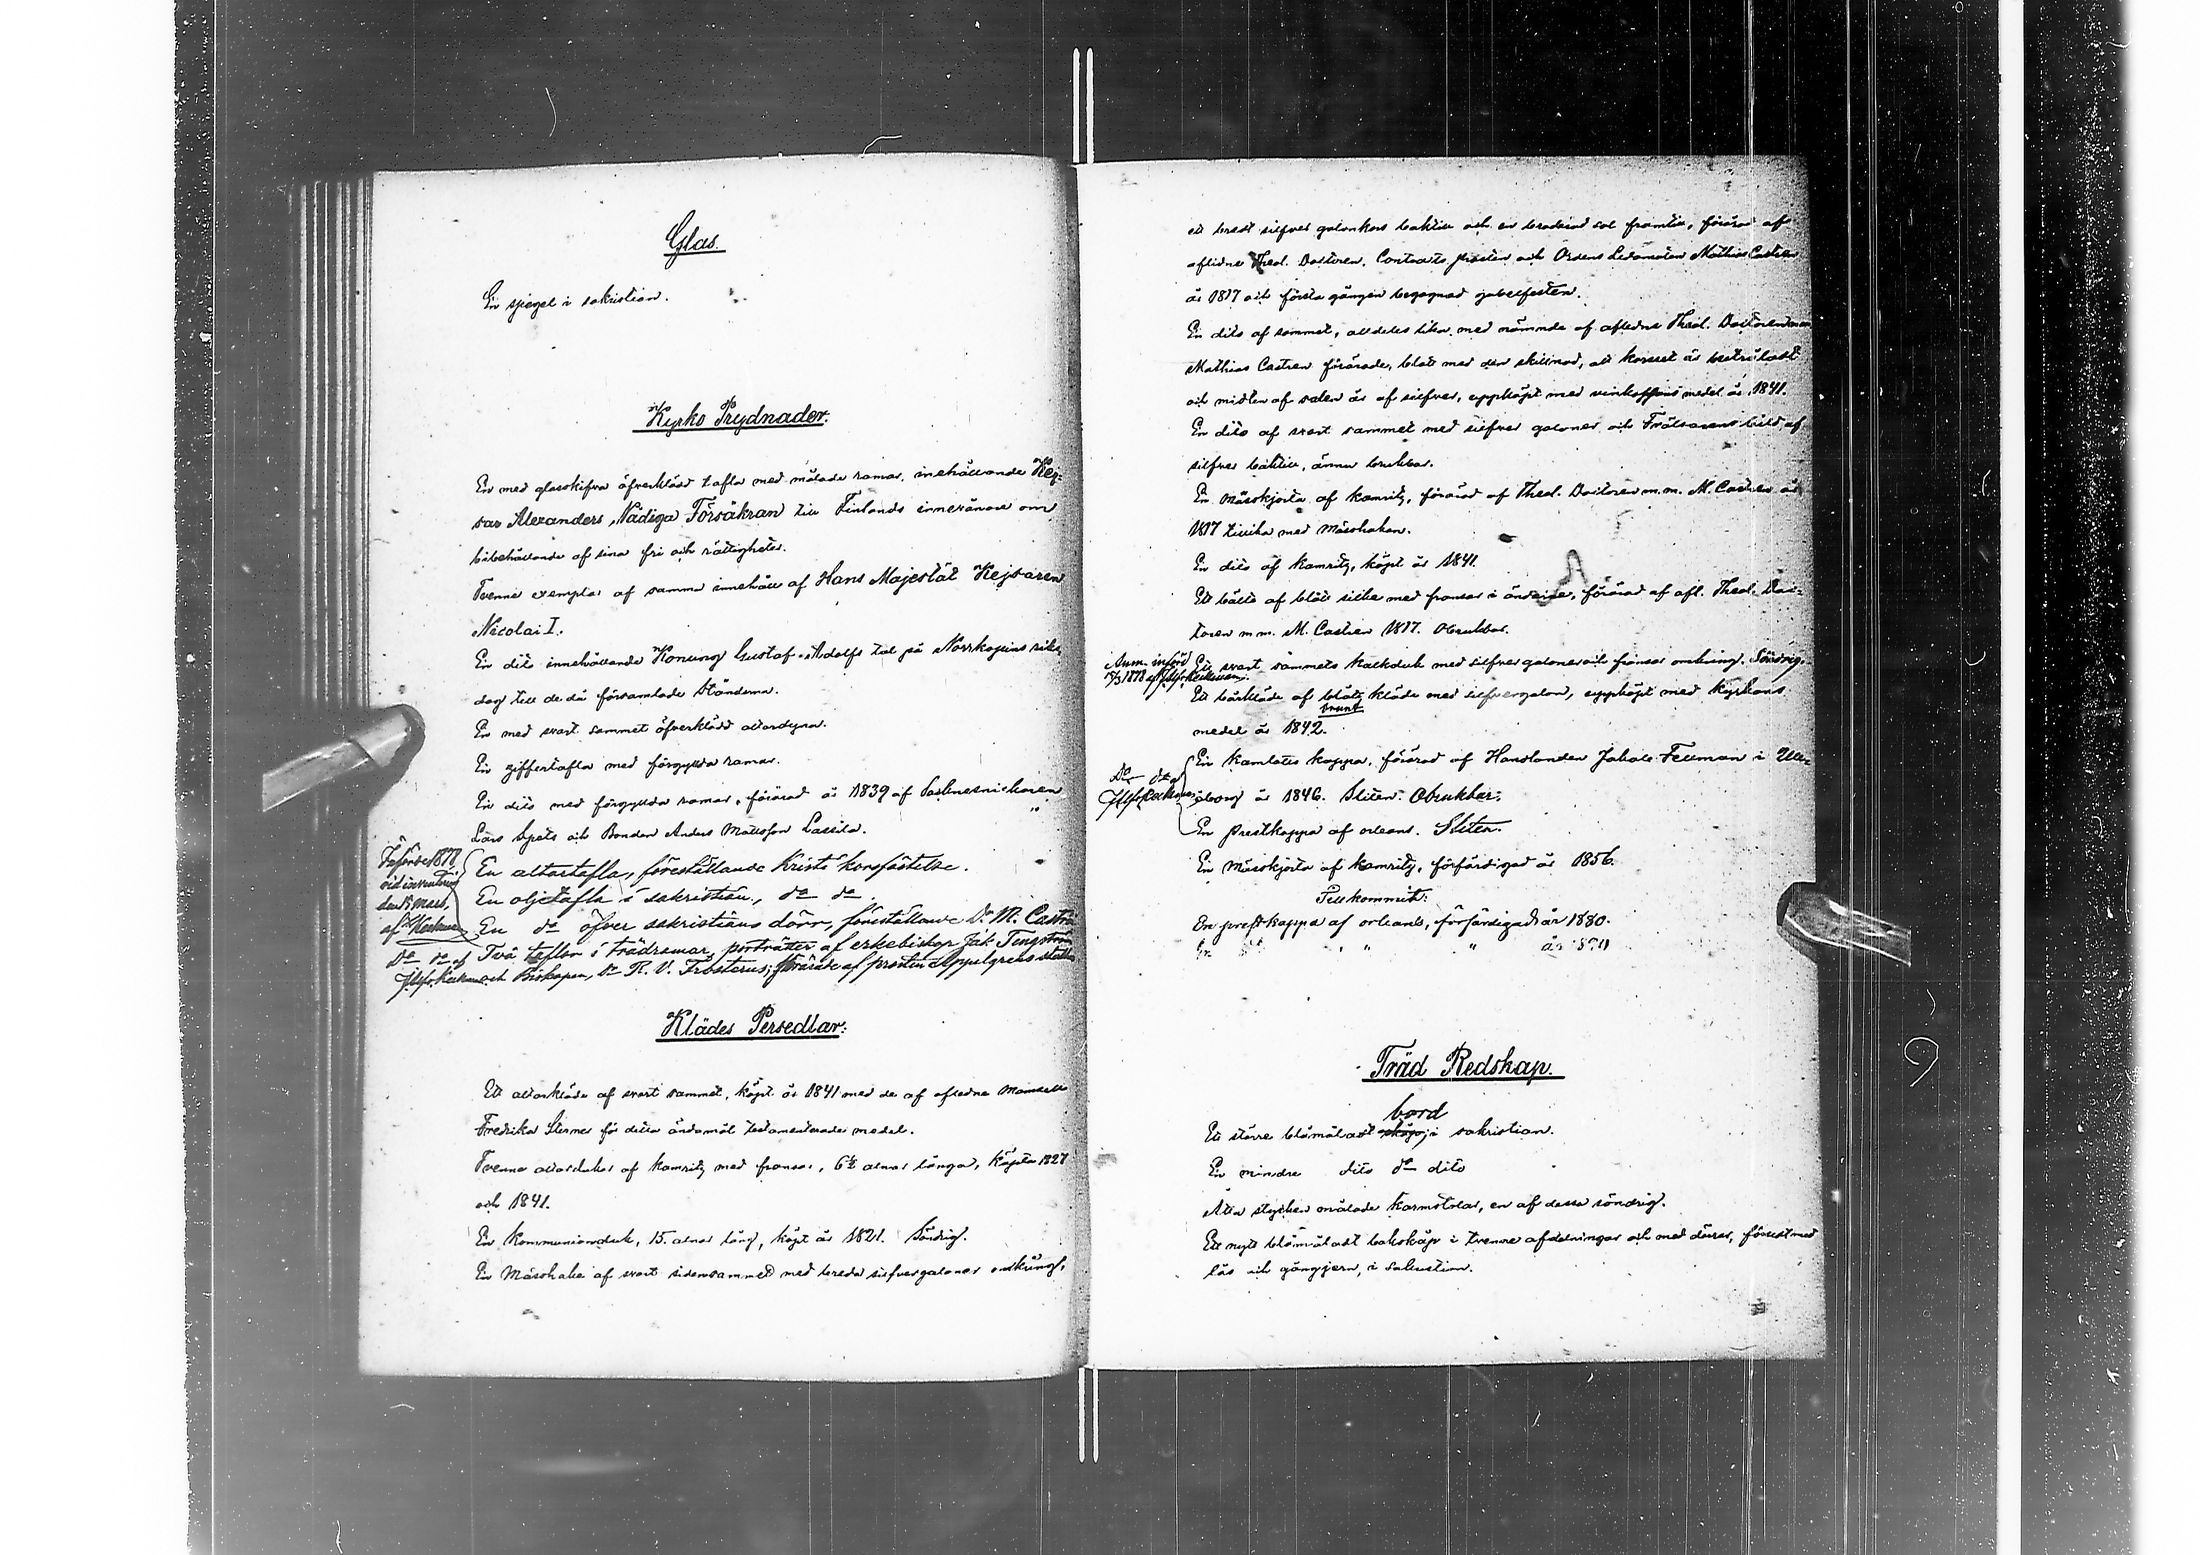 Glas.
En spegel i sakristian.
Kyrko Prydnader.
En med glasskifva öfverklädd tafla med målade ramar, inehållande Kej-
sar Alexanders Nådiga Försäkran till Finlands innevånare om
bibehållande af sina fri och rättigheter.
Tvenne exemplar af samma innehåll af Hans Majestät Kejsaren
Nicolai I.
En dito innehållande Konung Gustaf Adolfs tal på Norrköpins riks
dag till de då församlade Ständerna.
En med svart sammet öfverklädd altardyna.
En ziffertafla med förgyllda ramar.
En dito med förgyllda ramar, förärad år 1839 af
Lars Spets och Bonden Anders Mattsson Lassila.
Införde 1878
vid inventering
den 15 Mars,
af
En altartafla, föreställande Kristi korsfästelse.
En oljetafla i sakristian, do do
En do öfver sakristians dörr, föreställande Dr M. Castrén
Do do af Två taflor i trädramar, porträtter af erkebiskop Jak. Tengström
och Biskopen, Dr R. V. Frosterus; förärade af prosten Appelgrens
Klädes Persedlar.
Ett altarkläde af svart sammet, köpt år 1841 med de af aflidna Mamsell
Fredrika Sterner för detta ändamål testamenterade medel.
Tvenne altardukar af kamritz med fransar, 6½ alnar långa, köpta 1827
och 1841.
En kommunionduk, 15. alnar lång, köpt år 1821. Söndrig.
En Mässhake af svart sidensammet med breda silfvergaloner omkring,
ett bredt silfver galonkors baktill och en broderad sol framtill, förärad af
aflidne Theol. Doctoren, Contracts prosten och Ordens Ledamoten Mathias Castren
år 1817 och första gången begagnad jubelfesten.
En dito af sammet, alldeles lika med nämnde af aflidne Theol. Doctoren m m
Mathias Castren förärade, blott med den skillnad, att korset är
och midten af solen är af silfver, uppköpt med medel år 1841.
En dito af svart sammet med silfver galoner och Frälsarens bild af
silfver baktill, ännu brukbar.
En Mässkjorta af kamritz, förärad af Theol. Doctoren m.m. M. Castren år
1817 tillika med Mässhaken.
En dito af kamritz, köpt år 1841.
Ett bälte af blått silke med fransar i ändarne, förärad af afl. Theol. Doc-
toren m m. M. Castren 1817. Obrukbar.
Anm. införd
15/3 1878 af
Ett svart sammets kalkduk med silfvergaloner och fransar omkring. Söndrig.
Ett bårkläde af blått kläde med silfvergalon, uppköpt med Kyrkans
brunt
medel år 1842.
Do do af
En kamlotts kappa, förärad af Handlanden Jakob Fellman i Ule-
åborg år 1846. Sliten. Obrukbar.
En prestkappa af orleans. Sliten.
En Mässkjorta af kamritz, förfärdigad år 1856.
Tillkommit:
En prestkappa af orleans, förfärdigad år 1880.
En " " " år 1890
Träd Redskap.
bord
Ett större blåmåladt skåp i sakristian.
En mindre dito do dito
Åtta stycken omålade karmstolar, en af dessa söndrig.
Ett nytt blåmåladt bokskåp i tvenne afdelningar och med dörrar, försedt med
lås och gångjern, i sakristian.